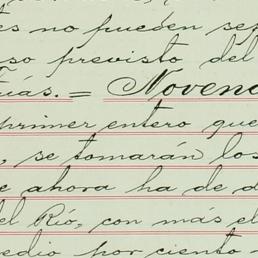 es no pueden sep
so previsto del
uás. = Noveno
primer entero que
, se tomarán los
e ahora ha de d
del Río, con más el
medio por ciento